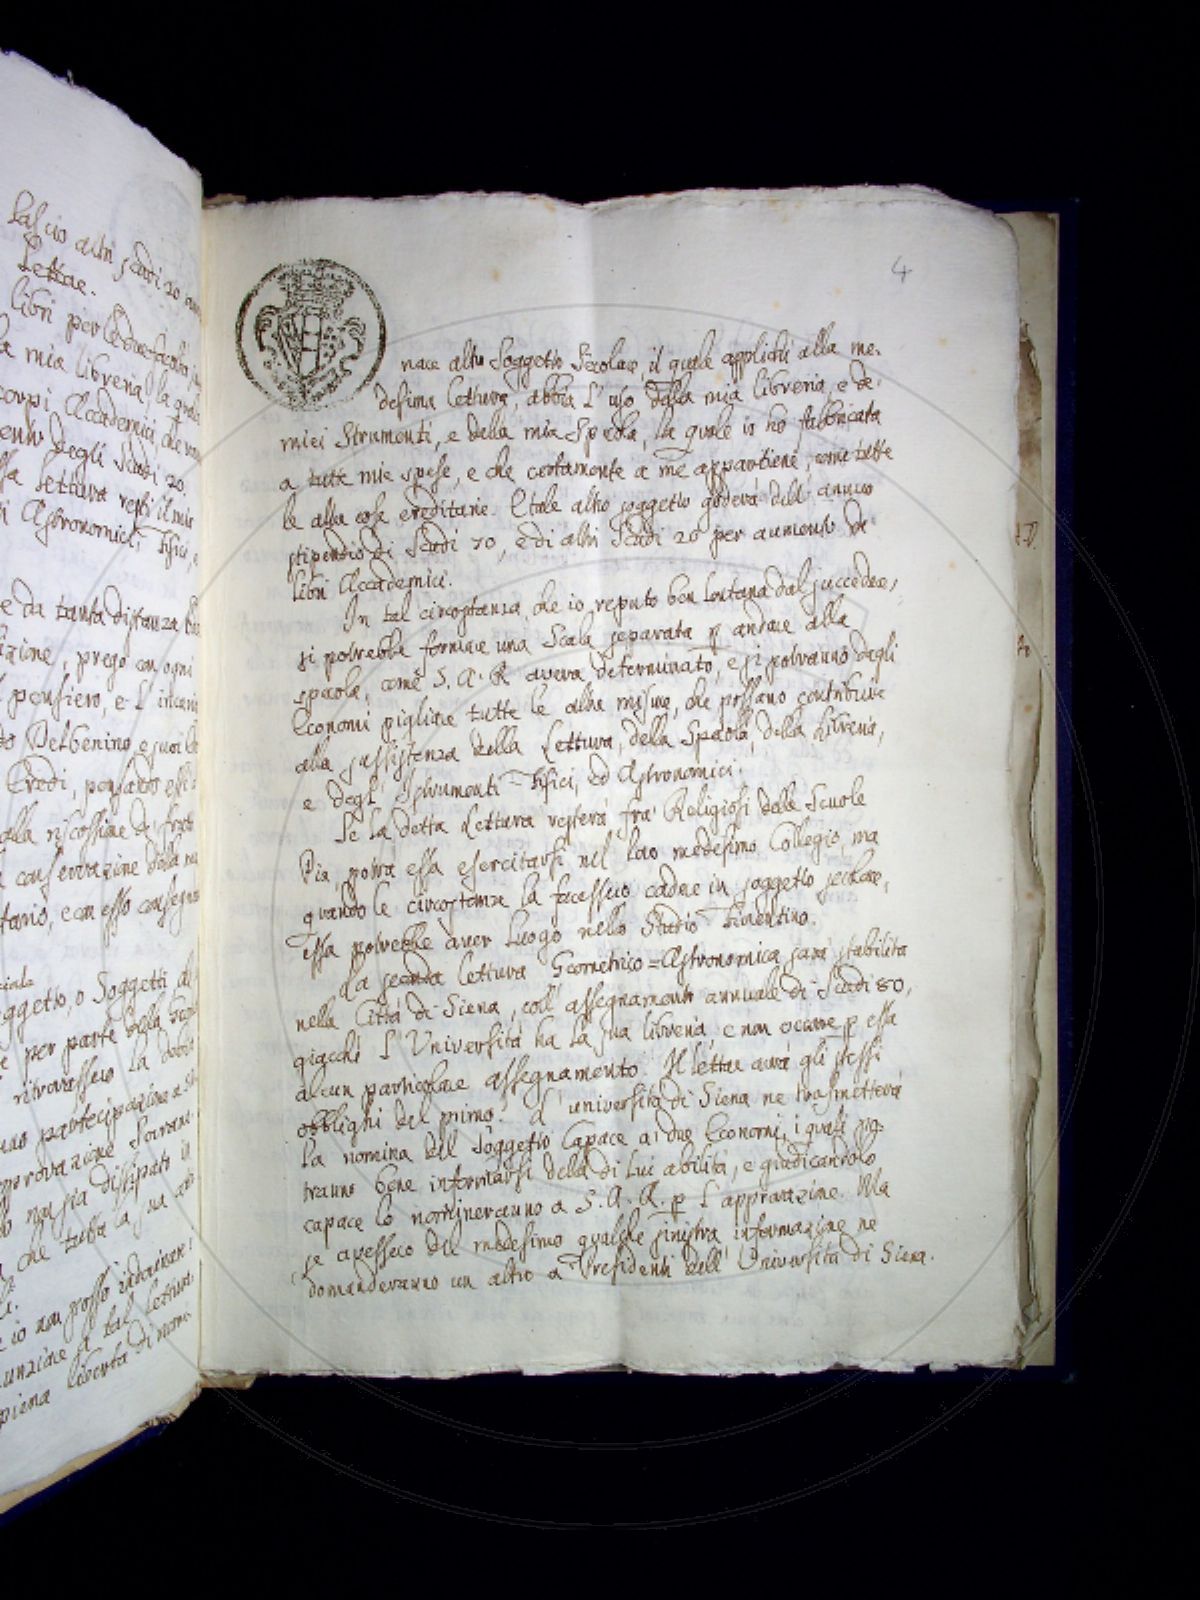 Lascio altri scudi 20
Lettore.
libri per le due
la mia libreria, la quale
corpi Accademici, che
degli Scudi 20.
lettura resti il mio
Astronomici, Fisici, e
e da tanta distanza
prego con ogni
pensiero, e l'
Delbenino, e suoi
Eredi,
alla riscossione de' frutti
conservazione della
con esso
Soggetto, o Soggetti
per parte della
la
partecipazione a
approvazione
non sia dissipato
che tutta la sua
io non posso indovinare
a tal lettura
piena libertà di nomi-
4
nare altro Soggetto Secolare, il quale applichi alla me-
desima lettura, abbia l'uso della mia libreria, e de'
miei Strumenti, e della mia Specola, la quale io ho fabbricata
a tutte mie spese, e che certamente a me appartiene, come tutte
le altre cose ereditarie. E tale altro soggetto goderà dell'annuo
stipendio di Scudi 70, e di altri Scudi 20 per aumento de
libri Accademici.
In tal circostanza, che io reputo ben lontana dal succedere,
si potrebbe formare una Scala separata p andare alla
specola, come S. A. R. aveva determinato, e si potranno dagli
Economi pigliare tutte le altre misure, che possano contribuire
alla sussistenza della Lettura, della Specola, della Libreria,
e degl' Istrumenti Fisici, ed Astronomici.
Se la detta Lettura resterà fra' Religiosi delle Scuole
Pie, potrà essa esercitarsi nel loro medesimo Collegio, ma
quando le circostanze la facessero cadere in soggetto secolare,
essa potrebbe aver luogo nello Studio Fiorentino.
La seconda lettura Geometrico=Astronomica sarà stabilita
nella Città di Siena, coll' assegnamento annuale di Scudi 80,
giacchè l'Università ha la sua libreria, e non occorre p essa
alcun particolare assegnamento. Il lettore avrà gli stessi
obblighi del primo. L'università di Siena ne trasmetterà
la nomina del Soggetto Capace a i due Economi, i quali po-
tranno bene informarsi della di lui abilità, e giudicandolo
capace lo nomineranno a S. A. R. p l'approvazione. Ma
se avessero del medesimo qualche sinistra informazione ne
domanderanno un altro a' Presidenti dell' Università di Siena.